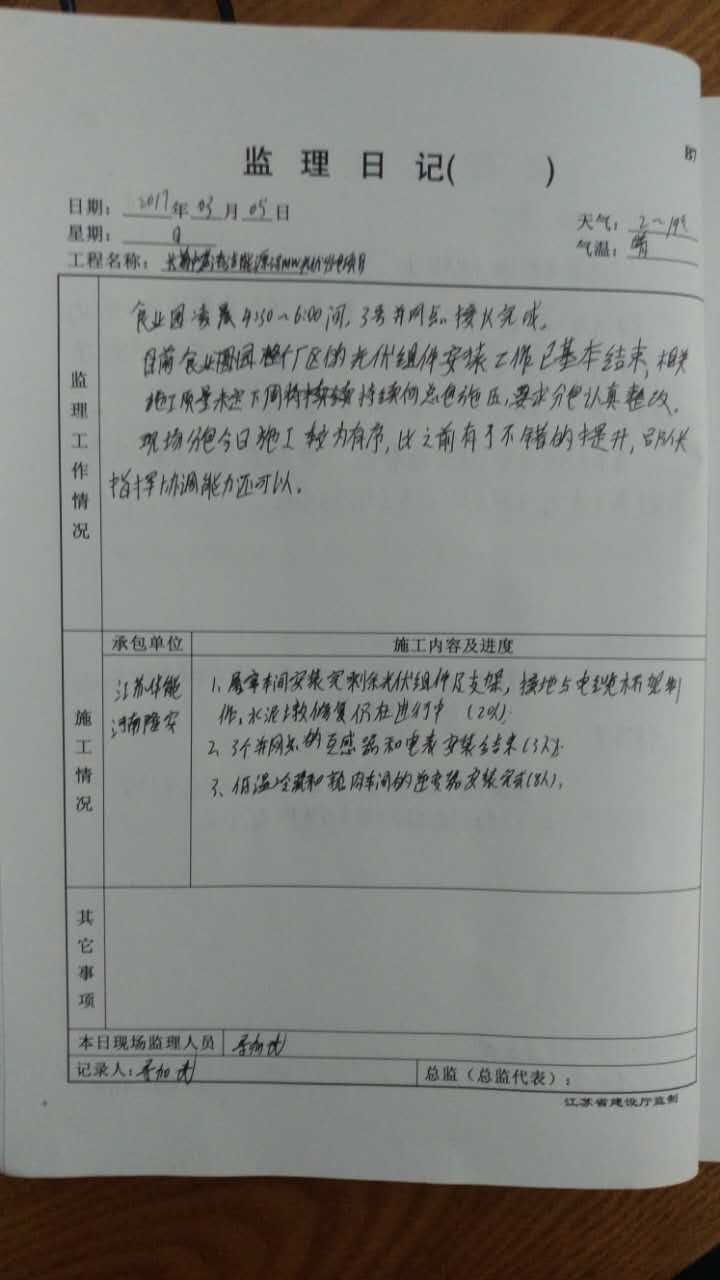 监 理 日 记( )
B7
日期: 2017 年 03 月 05 日
天气: 2～19℃
星期: 日
气温: 晴
工程名称:
监理工作情况
食业园凌晨4:30～6:00间,3号并网点接火完成。
目前食业园整个厂区的光伏组件安装工作已基本结束,相关
施工质量 下周 持续向总包施压,要求分包认真整改。
现场分包今日施工较为有序,比之前有了不错的提升,
指挥协调能力还可以。
施工情况
承包单位
施工内容及进度
江苏华能
河南隆安
1、屠宰车间安装完剩余光伏组件及支架,接地与电缆桥架制
作,水泥 修复仍在进行中 (20人).
2、3个并网点的互感器和电表安装结束(3人).
3、低温冷藏和 车间的逆变器安装完成(8人).
其它事项
本日现场监理人员
记录人:
总监（总监代表）:
江苏省建设厅监制